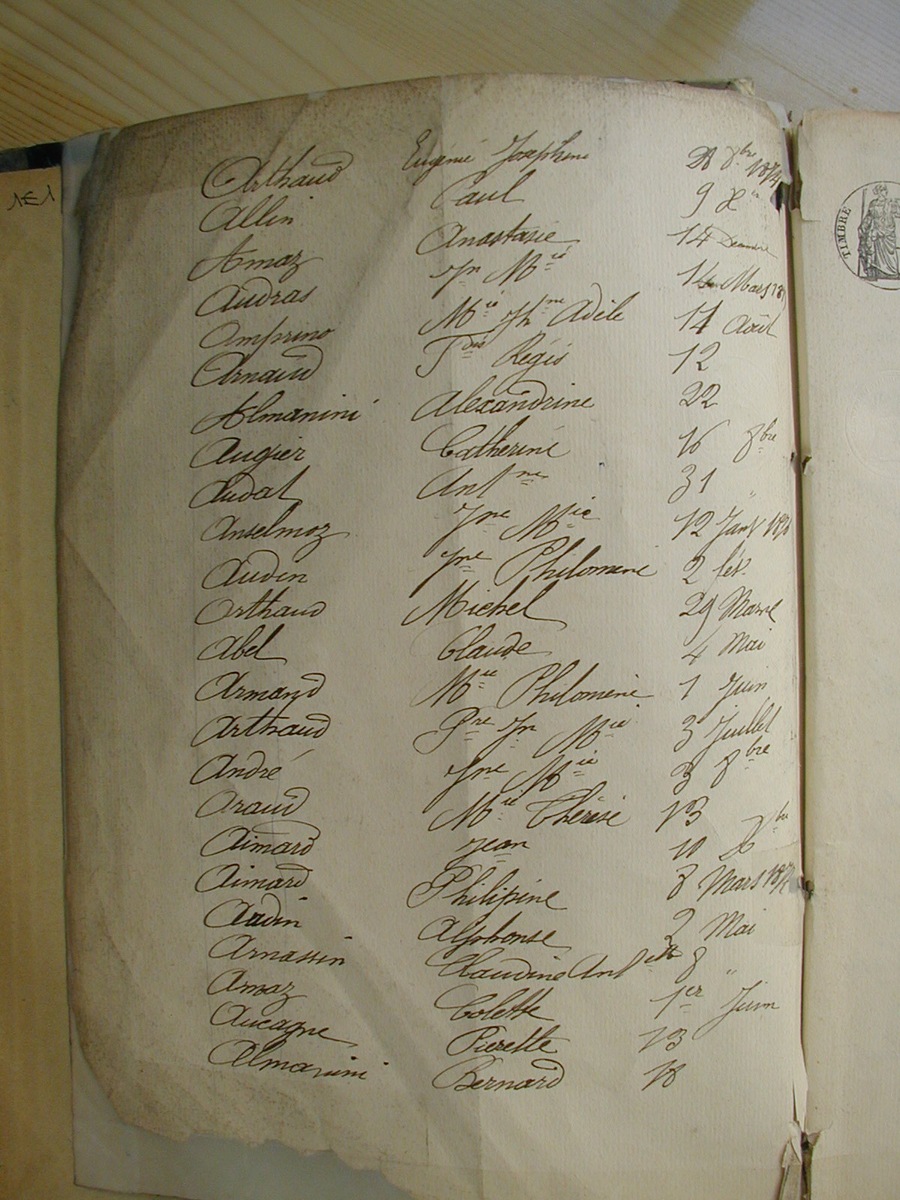 1E1
TIMBRE
Arthaud Eugénie Joséphine 28 8bre 1874
Allin Paul 9 Xre
Amaz Anastasie 14 Décembre
Audras Jn Mie 14 Mars
Amprino Mie Jhne Adèle 14 Août
Arnaud Fois Régis 12
Almanini Alexandrine 22
Augier Catherine 16 8bre
Audat Antne 31 "
Anselmoz Jne Mie 12 Janv
Audin Jne Philomène 2 fév.
Arthaud Michel 29 Mars
Abel Claude 4 Mai
Armand Mie Philomène 1 Juin
Arthaud Pre Jn Mie 3 Juillet
André Jne Mie 3 8bre
Araud Mie Thérèse 13
Aimard Jean 10 Xbre
Aimard Philipine 8 Mars
Audin Alphonse 2 Mai
Arnassin Claudine Antette 8 "
Amaz Colette 1er Juin
Aucagne Pierette 13
Almanini Bernard 18